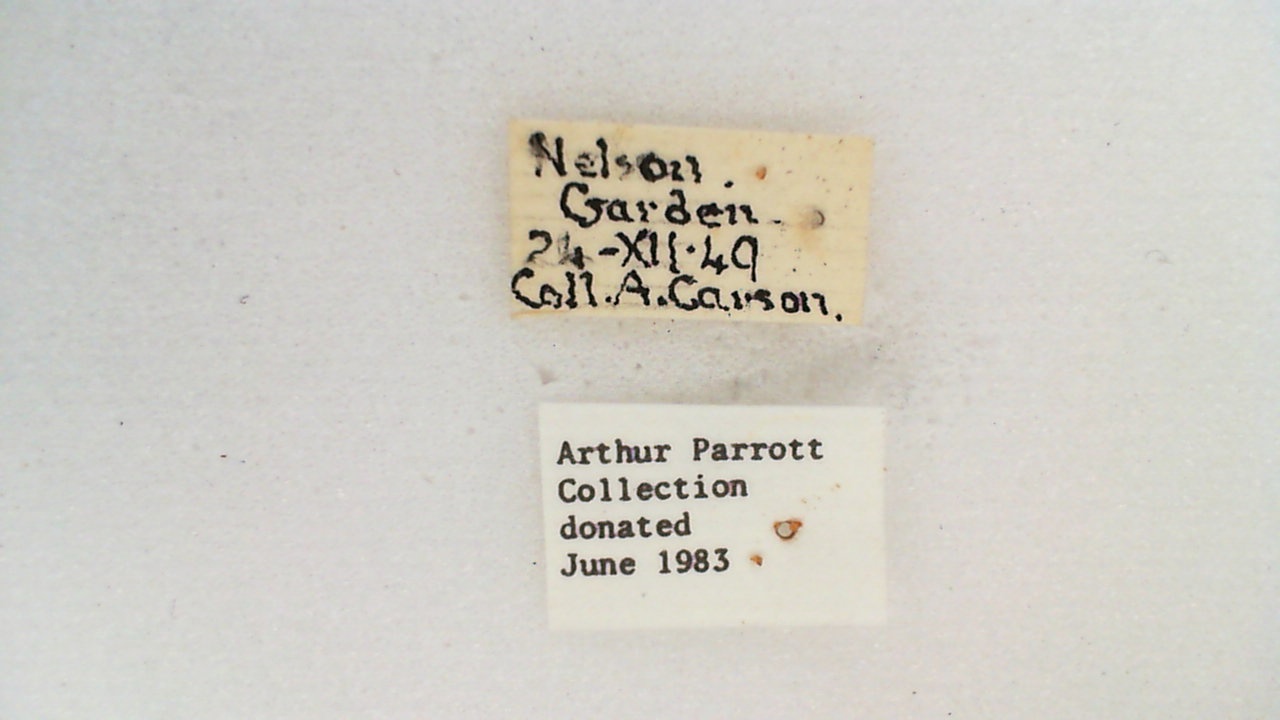 Nelson.
Garden.
24-XII.49
Coll.A.Carson.
Arthur Parrott
Collection
donated
June 1983